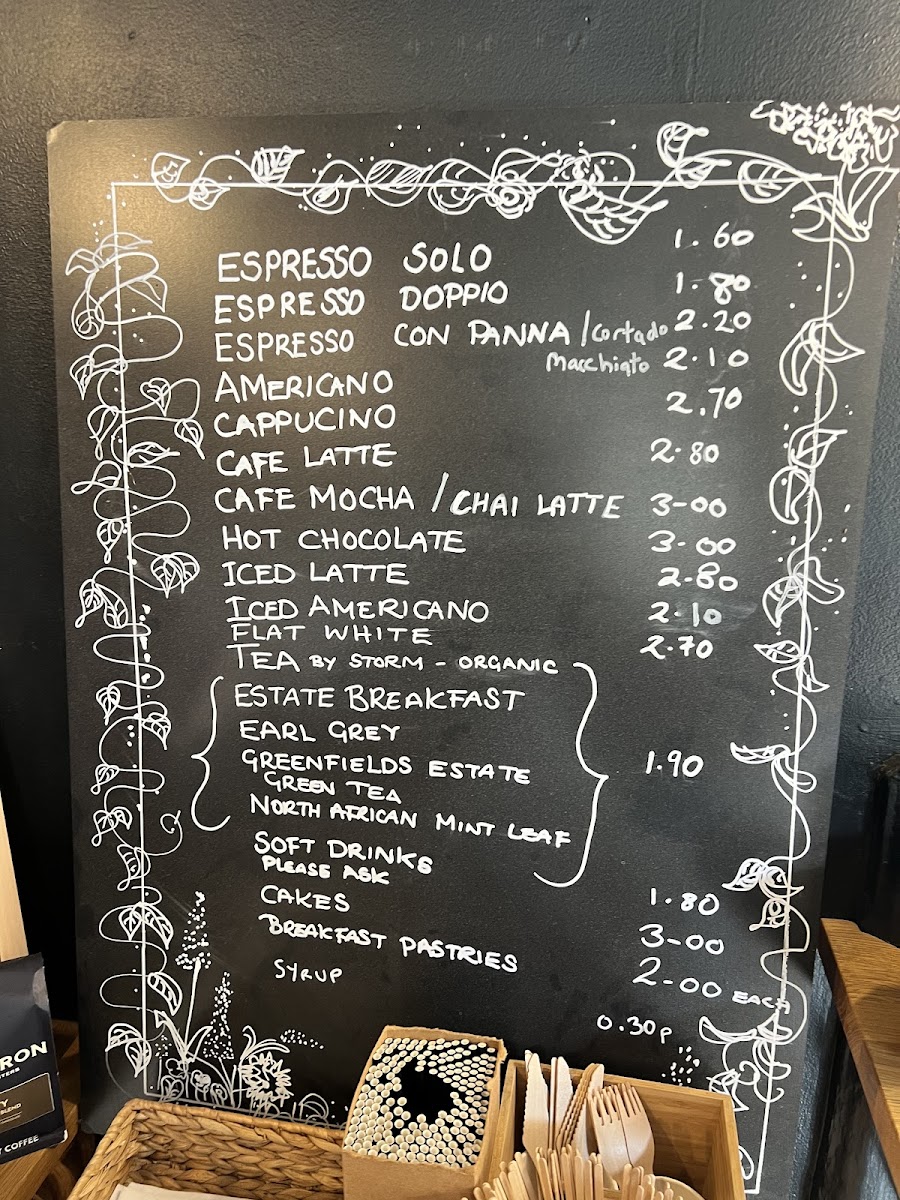 ESPRESSO SOLO 1.60
ESPRESSO DOPPIO 1.80
ESPRESSO CON PANNA / Cortado 2.20
Macchiato
AMERICANO 2.10
CAPPUCINO 2.70
CAFE LATTE 2.80
CAFE MOCHA / CHAI LATTE 3-00
HOT CHOCOLATE 3-00
ICED LATTE 2.80
ICED AMERICANO 2.10
FLAT WHITE 2.70
TEA BY STORM - ORGANIC
ESTATE BREAKFAST
EARL GREY
GREENFIELDS ESTATE 1.90
GREEN TEA
NORTH AFRICAN MINT LEAF
SOFT DRINKS 1.80
PLEASE ASK
CAKES 3-00
BREAKFAST PASTRIES 2-00 EACH
SYRUP 0.30p
RON
BLEND
COFFEE